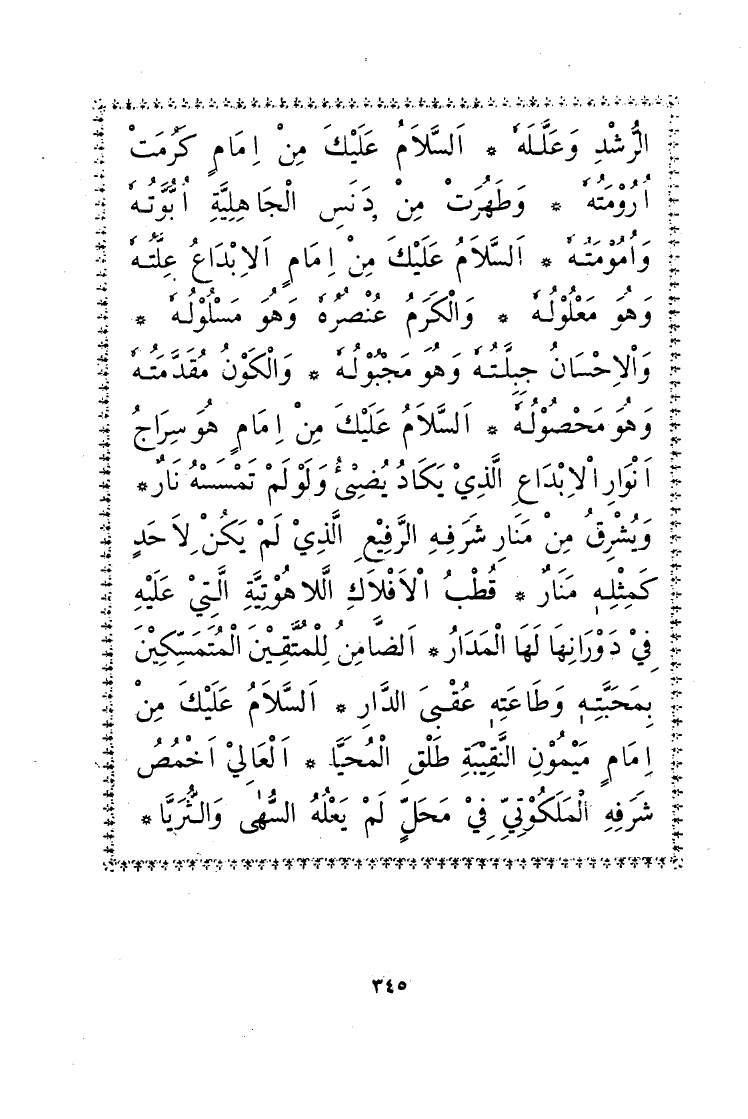 الرُّشْدِ وَعَلَّلَهُ * اَلسَّلَامُ عَلَيْكَ مِنْ اِمَامٍ كَرُمَتْ
اُرُوْمَتُهُ * وَطَهُرَتْ مِنْ دَنَسِ الْجَاهِلِيَّةِ اُبُوَّتُهُ
وَاُمُوْمَتُهُ * اَلسَّلَامُ عَلَيْكَ مِنْ اِمَامٍ اَلْاِبْدَاعُ عِلَّتُهُ
وَهُوَ مَعْلُوْلُهُ * وَالْكَرَمُ عُنْصُرُهُ وَهُوَ مَسْلُوْلُهُ *
وَالْاِحْسَانُ جِبِلَّتُهُ وَهُوَ مَجْبُوْلُهُ * وَالْكَوْنُ مُقَدَّمَتُهُ
وَهُوَ مَحْصُوْلُهُ * اَلسَّلَامُ عَلَيْكَ مِنْ اِمَامٍ هُوَ سِرَاجُ
اَنْوَارِ الْاِبْدَاعِ الَّذِيْ يَكَادُ يُضِيْئُ وَلَوْ لَمْ تَمْسَسْهُ نَارٌ *
وَيُشْرِقُ مِنْ مَنَارِ شَرَفِهِ الرَّفِيْعِ الَّذِيْ لَمْ يَكُنْ لِاَحَدٍ
كَمِثْلِهِ مَنَارٌ * قُطْبُ الْاَفْلَاكِ اللَّاهُوْتِيَّةِ الَّتِيْ عَلَيْهِ
فِيْ دَوْرَانِهَا لَهَا الْمَدَارُ * اَلضَّامِنُ لِلْمُتَّقِيْنَ الْمُتَمَسِّكِيْنَ
بِمَحَبَّتِهِ وَطَاعَتِهِ عُقْبَى الدَّارِ * اَلسَّلَامُ عَلَيْكَ مِنْ
اِمَامٍ مَيْمُوْنِ النَّقِيْبَةِ طَلْقِ الْمُحَيَّا * اَلْعَالِيْ اَخْمُصُ
شَرَفِهِ الْمَلَكُوْتِيِّ فِيْ مَحَلٍّ لَمْ يَعْلُهُ السُّهٰى وَالثُّرَيَّا *
٣٤٥